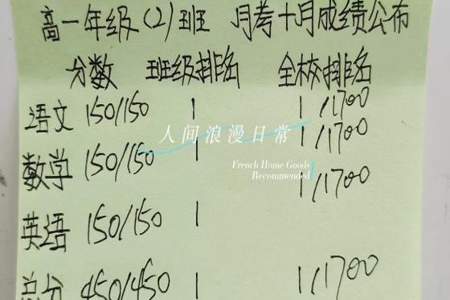 高一年级(2)班 月考十月成绩公布
分数 班级排名 全校排名
语文 150/150 1 1/1700
人间浪漫日常
数学 150/150 1 1/1700
French Home Goods
Recommended
1/1700
英语 150/150 1
总分 450/450 1 1/1700